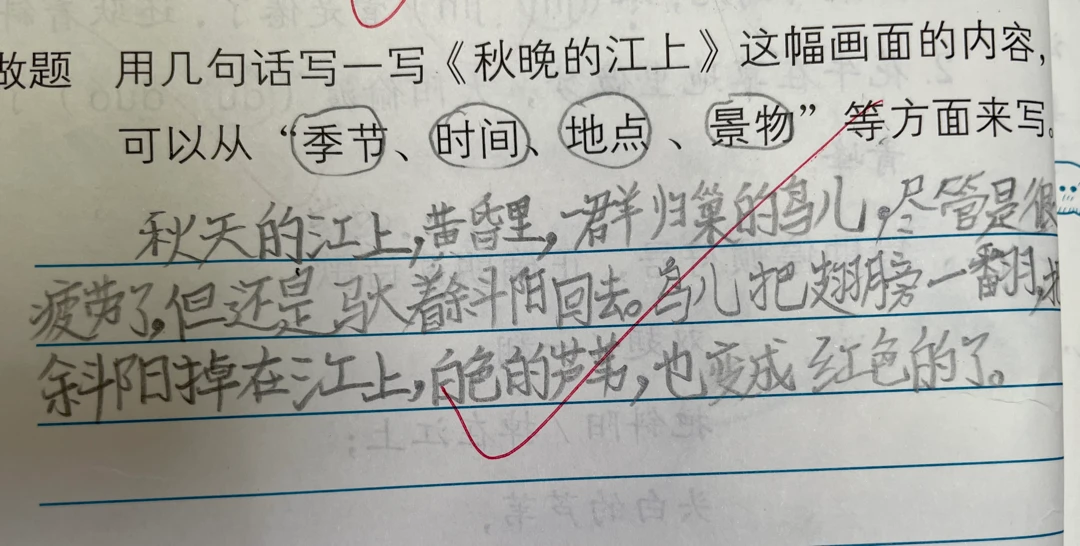 做题 用几句话写一写《秋晚的江上》这幅画面的内容,
可以从“季节、时间、地点、景物”等方面来写。
秋天的江上,黄昏里,一群归巢的鸟儿,尽管是很
疲劳了,但还是驮着斜阳回去。鸟儿把翅膀一翻,
斜阳掉在江上,白色的芦苇,也变成红色的了。